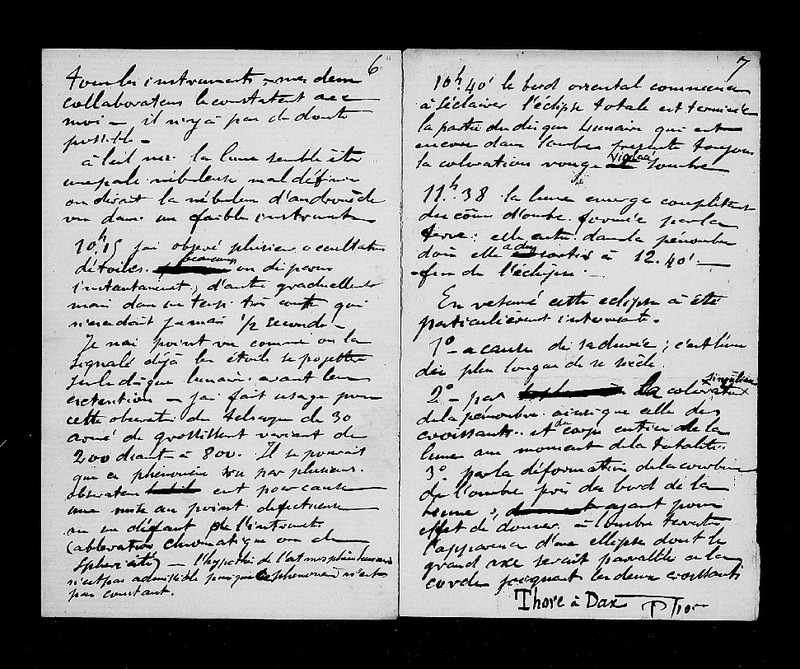 6
Tous les instruments - mes deux
collaborateurs le constatent avec
moi - il n'y a pas de doute
possible -
à l'œil nu la lune semble être
une pale nébuleuse mal définie
on dirait la nébuleuse d'andromède
vue dans un faible instrument
10h 15 j'ai observé plusieurs occultations
d'étoiles. beaucoup on disparu
instantanément, d'autres graduellement
mais dans un temps très court qui
n'excedait jamais 1/2 seconde -
Je n'ai point vu comme on l'a
signalé déjà les étoiles se projetter
sur le disque lunaire avant leur
extention - j'ai fait usage pour
cette observation du telescope de 30
armé de grossissement variant de
200 diam à 800. Il se pourrait
que ce phénomène vu par plusieurs
observateurs est pour cause
une mise au point defectueuse
ou un défaut de l'instrument
(abberation chromatique ou de
sphericité) - l'hypothèse de l'atmosphère lunaire
n'est pas admissible puisque ce phénomène n'est
pas constant.
7
10h. 40' le bord oriental commence
à s'éclairer l'éclipse totale est terminée
la partie du disque lunaire qui est
encore dans l'ombre presente toujours
la coloration rouge violacé sombre
11h. 38 la lune emerge complètement
du cône d'ombre formée par la
terre: elle entre dans la pénombre
dont elle a du sortir à 12.40' -
fin de l'éclipse. -
En resumé cette eclipse a été
particulièrement interessante.
1º - a cause de sa durée; c'est l'une
des plus longue de ce siècle.
2º - par la coloration singulière
de la penombre ainsi que celle des
croissants. et du corps entier de la
lune au moment de la totalité.
3º par la déformation de la courbure
de l'ombre près du bord de la
lune, ayant pour
effet de donner à l'ombre terrestre
l'apparence d'une ellipse dont le
grand axe serait parallèle à la
corde joignant les deux croissants
Thore à Dax P Thore